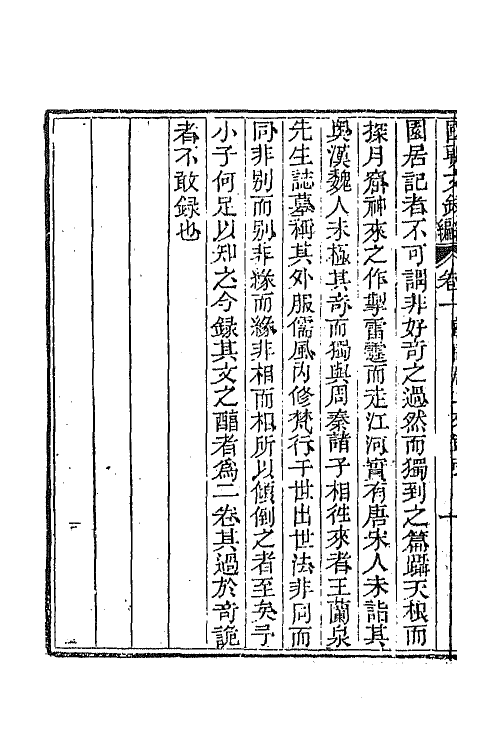 園居記者不可謂非好奇之過然而獨到之篇躡天根而
探月窟神來之作掣雷霆而走江河實有唐宋人未詣其
奧漢魏人未極其奇而獨與周秦諸子相徃來者王蘭泉
先生誌墓稱其外服儒風內修梵行于世出世法非同而
同非别而别非緣而緣非相而相所以傾倒之者至矣予
小子何足以知之今録其文之醇者爲二卷其過於奇詭
者不敢録也